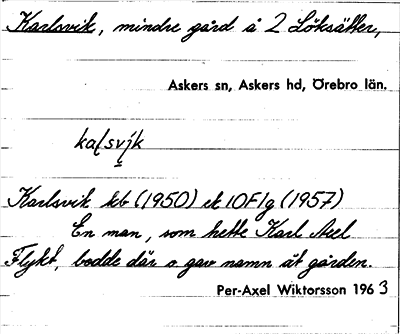 Karlsvik, mindre gård å 2 Löksätter,
Askers sn, Askers hd, Örebro län.
kaḷsvi̬k
Karlsvik kb (1950) ek 10F1g (1957)
En man, som hette Karl Axel
Flykt, bodde där o gav namn åt gården.
Per-Axel Wiktorsson 1963